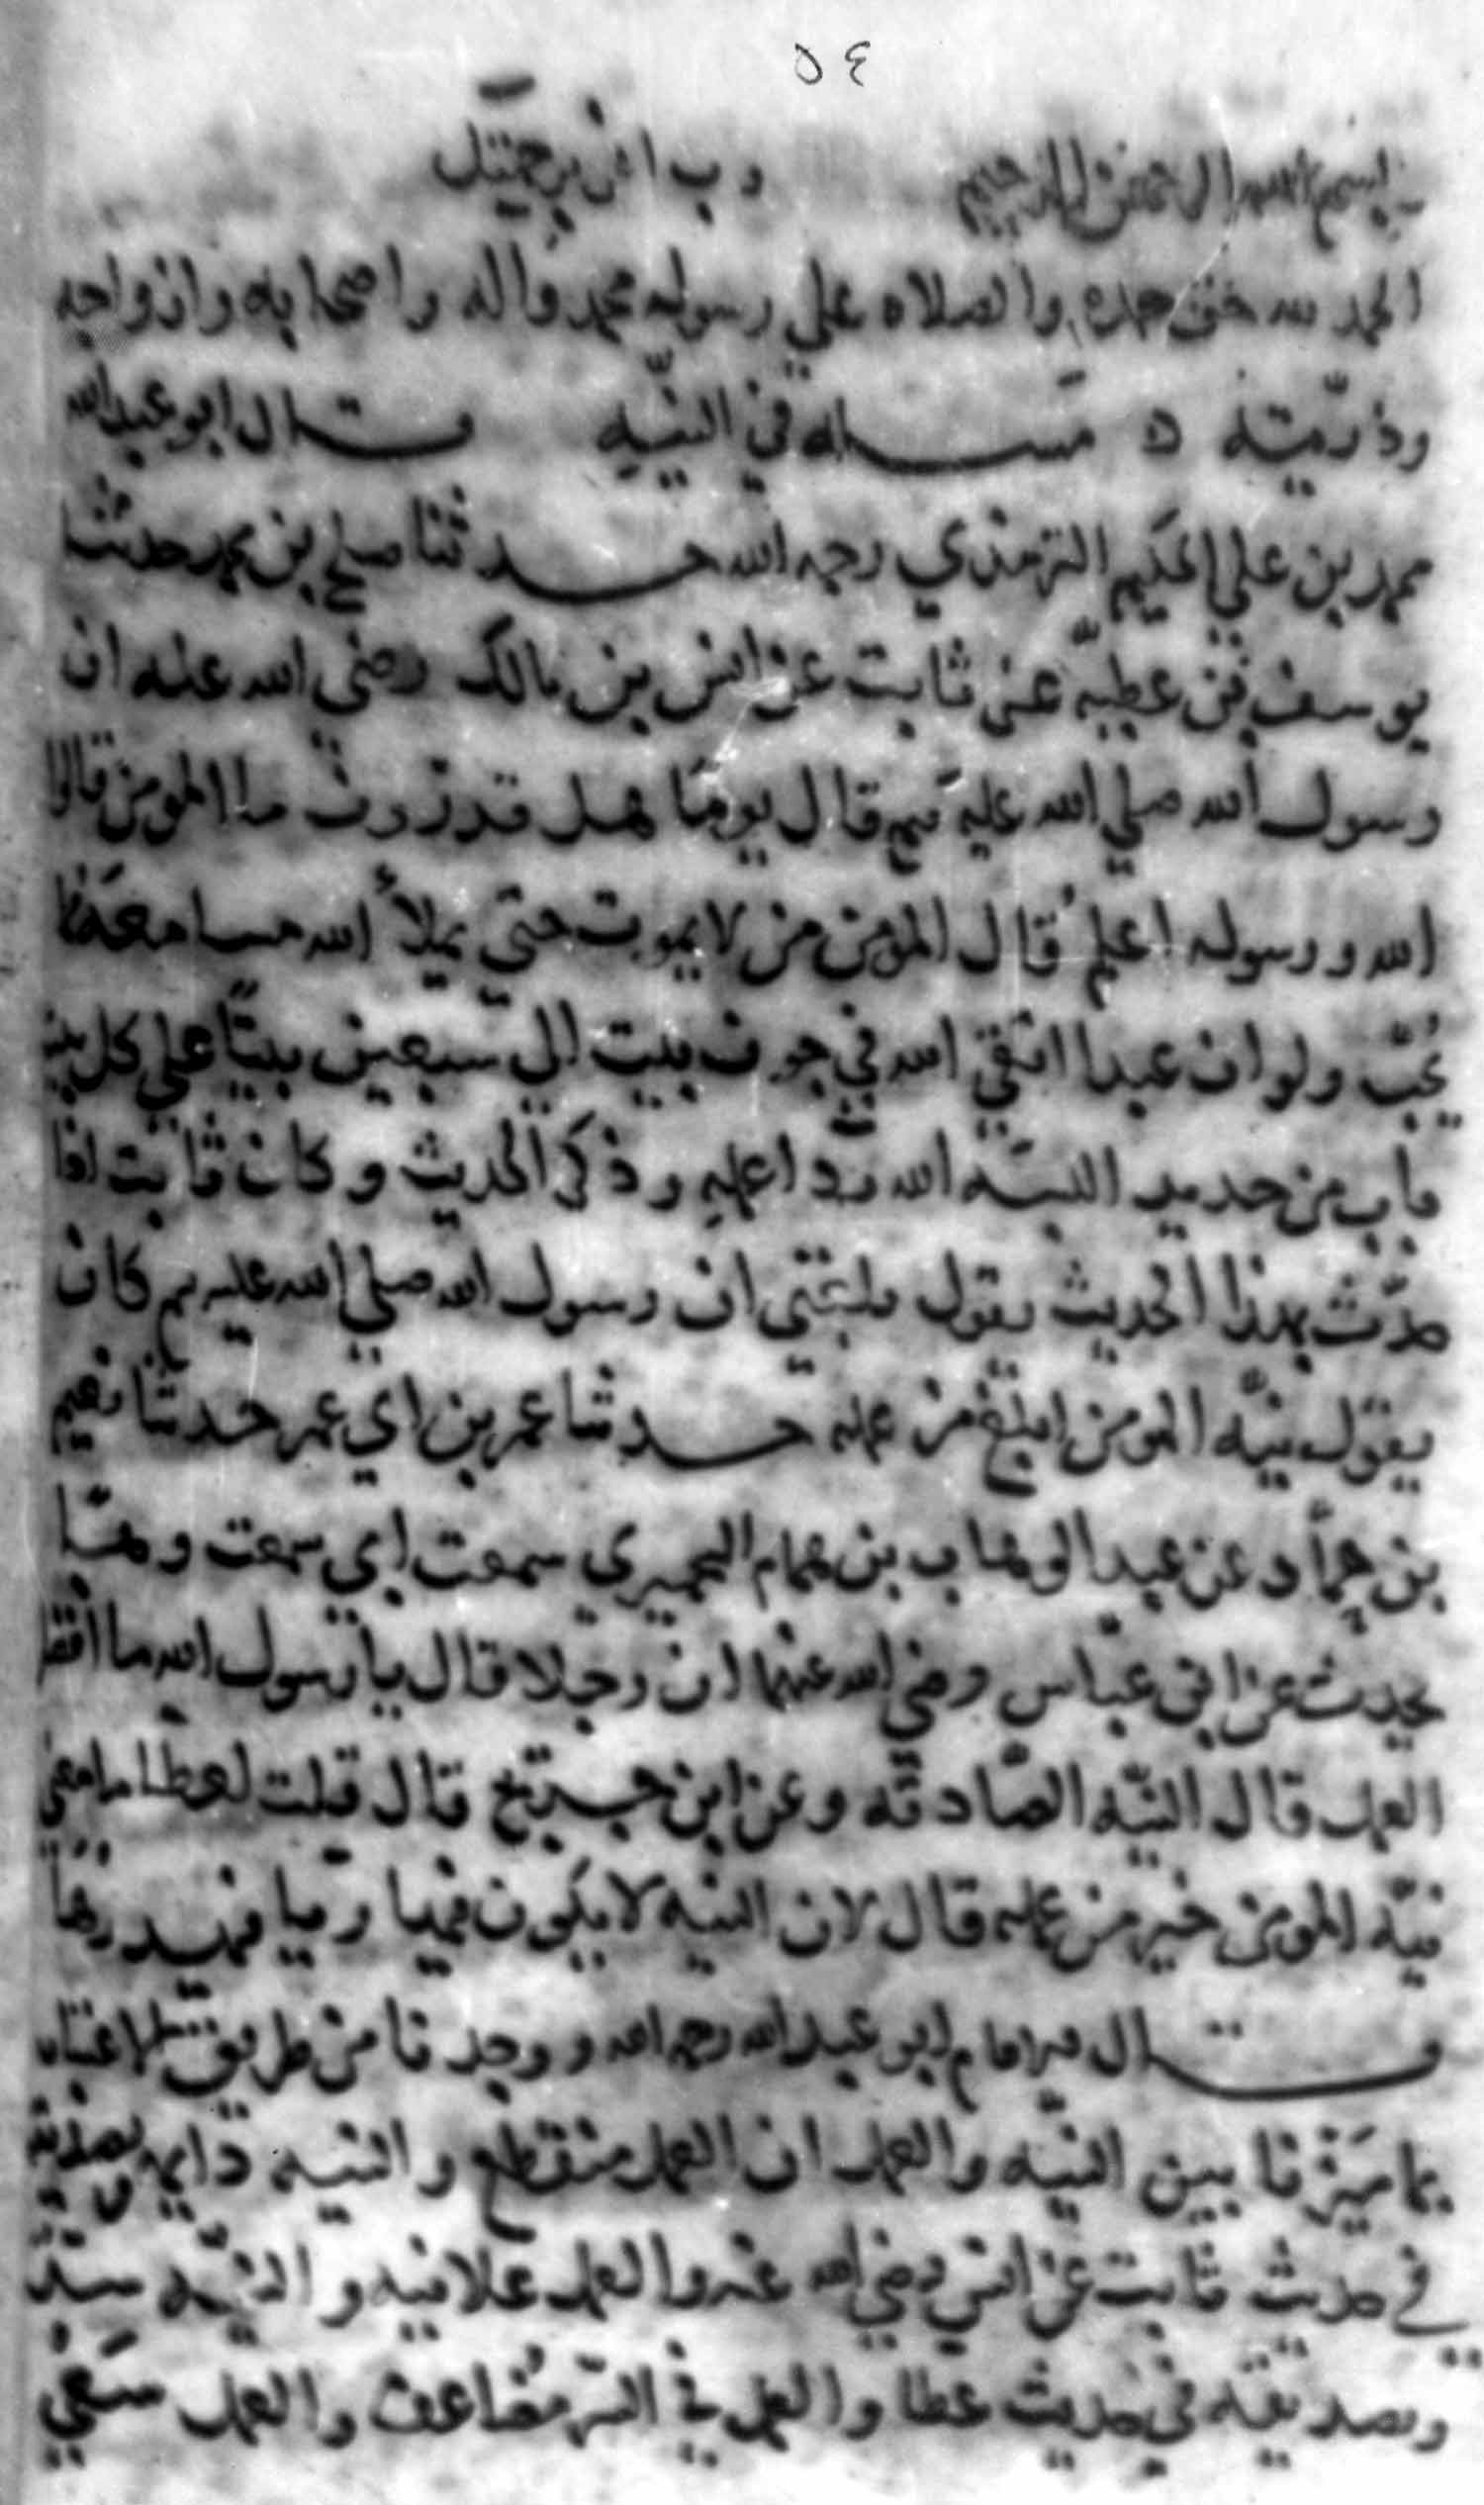 ٥٤
بسم الله الرحمن الرحيم رب اعن برحمتك
الحمد لله حق حمده والصلاه علي رسوله محمد واله واصحابه وازواجه
وذريته ه مسله في النيه قال ابو عبد الله
محمد بن علي الحكيم الترمذي رحمه الله حدثنا صلح بن محمد حدثنا
يوسف بن عطيه عن ثابت عن انس بن مالك رضي الله عنه ان
رسول الله صلي الله عليه سم قال يوما هل تدرون ما المومن قالوا
الله ورسوله اعلم قال المومن من لا يموت حتي يملأ الله مسامعه مما
يحب ولو ان عبدا اتقي الله في جوف بيت الي سبعين بيتا علي كل بيت
باب من حديد البسه الله ردا عمله وذكر الحديث وكان ثابت اذا
حدث بهذا الحديث يقول بلغني ان رسول الله صلي الله عليه سم كان
يقول نيه المومن ابلغ من عمله حدثنا عمر بن ابي عمر حدثنا نعيم
بن حماد عن عبد الوهاب بن همام الحميري سمعت ابي سمعت وهبا
يحدث عن ابن عباس رضي الله عنهما ان رجلا قال يا رسول الله ما افضل
العمل قال النيه الصادقه وعن ابن جريج قال قلت لعطا ما معني
نيه المومن خير من عمله قال لان النيه لا يكون فيها ريا فيهدرها
قال الامام ابو عبد الله رحمه الله ووجدنا من طريق الاعتبار
بما ميزنا بين النيه والعمل ان العمل منقطع والنيه دايمه تصديقه
في حديث ثابت عن انس رضي الله عنه والعمل علانيه والنيه سر
وتصديقه في حديث عطا والعمل في السر مضاعف والعمل سعي